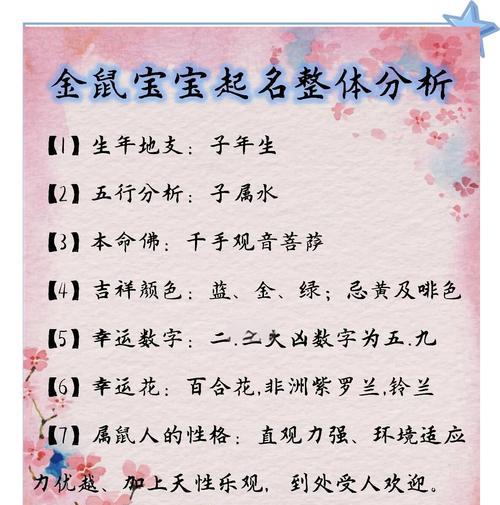 金鼠宝宝起名整体分析
【1】生年地支：子年生
【2】五行分析：子属水
【3】本命佛：千手观音菩萨
【4】吉祥颜色：蓝、金、绿；忌黄及啡色
【5】幸运数字：二.大凶数字为五.九
【6】幸运花：百合花,非洲紫罗兰,铃兰
【7】属鼠人的性格：直观力强、环境适应
力优越、加上天性乐观，到处受人欢迎。